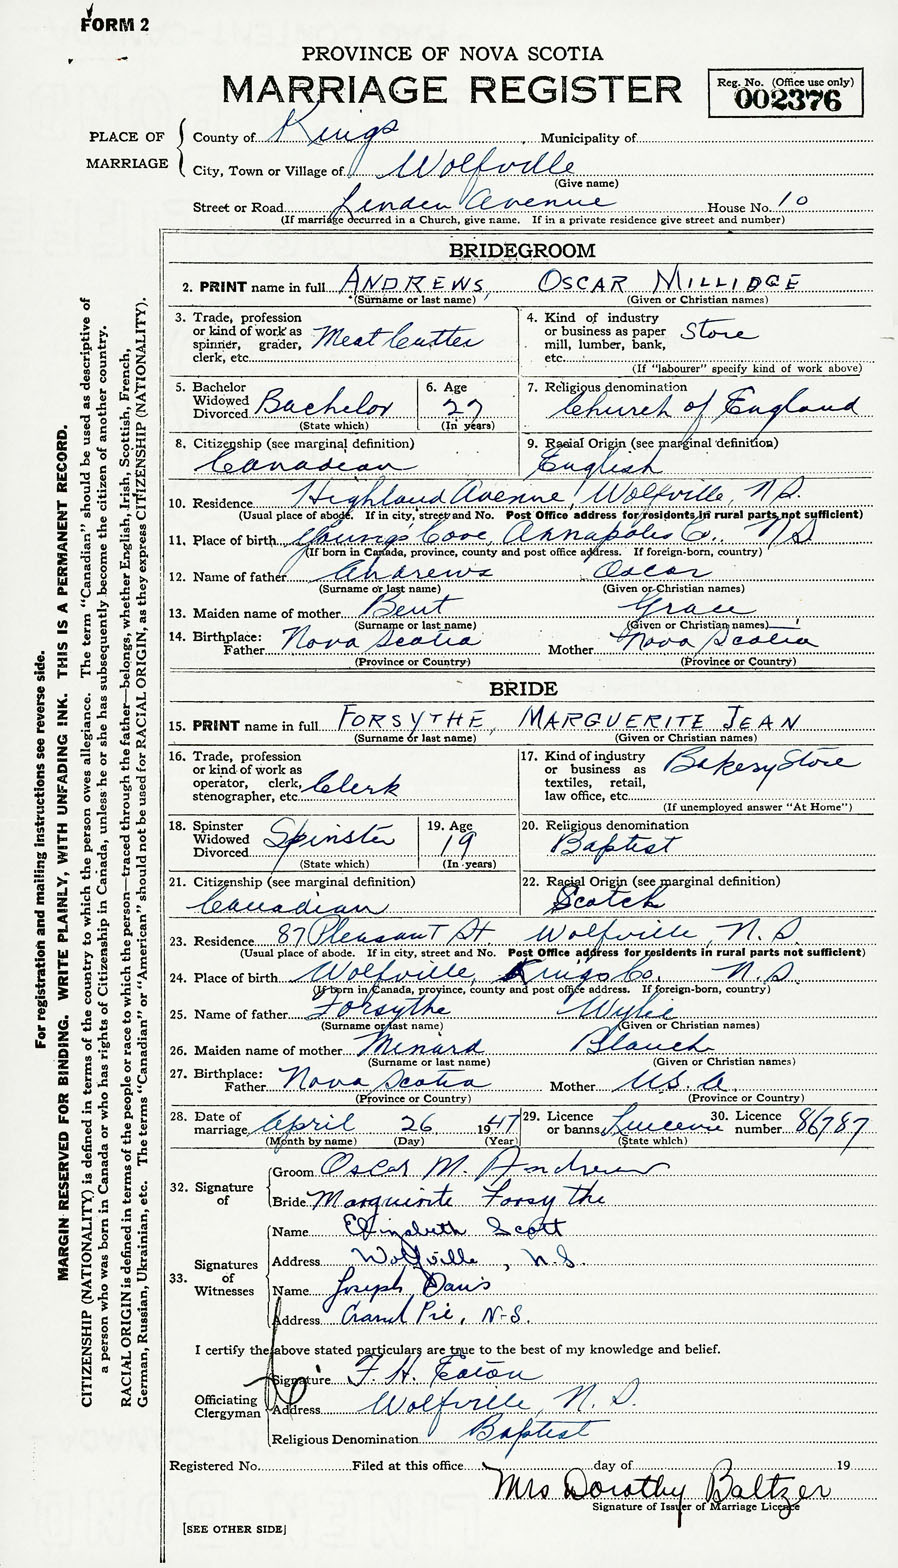 FORM 2
PROVINCE OF NOVA SCOTIA
MARRIAGE REGISTER
Reg. No. (Office use only)
002376
PLACE OF MARRIAGE
County of Kings, Municipality of
City, Town or Village of Wolfville
(Give name)
Street or Road Linden Avenue House No. 10
(If marriage occurred in a Church, give name. If in a private residence give street and number)
BRIDEGROOM
2. PRINT name in full ANDREWS, OSCAR MILLIDGE
(Surname or last name) (Given or Christian names)
3. Trade, profession or kind of work as spinner, grader, clerk, etc. Meat Cutter
4. Kind of industry or business as paper mill, lumber, bank, etc. Store
(If "labourer" specify kind of work above)
5. Bachelor Widowed Divorced Bachelor
(State which)
6. Age 27
(In years)
7. Religious denomination
Church of England
8. Citizenship (see marginal definition)
Canadian
9. Racial Origin (see marginal definition)
English
10. Residence Highland Avenue, Wolfville, N.S.
(Usual place of abode. If in city, street and No. Post Office address for residents in rural parts not sufficient)
11. Place of birth Youngs Cove, Annapolis Co., N S
(If born in Canada, province, county and post office address. If foreign-born, country)
12. Name of father Andrews Oscar
(Surname or last name) (Given or Christian names)
13. Maiden name of mother Bent Grace
(Surname or last name) (Given or Christian names)
14. Birthplace: Father Nova Scotia Mother Nova Scotia
(Province or Country) (Province or Country)
BRIDE
15. PRINT name in full FORSYTHE, MARGUERITE JEAN
(Surname or last name) (Given or Christian names)
16. Trade, profession or kind of work as operator, clerk, stenographer, etc. Clerk
17. Kind of industry or business as textiles, retail, law office, etc. Bakery Store
(If unemployed answer "At Home")
18. Spinster Widowed Divorced Spinster
(State which)
19. Age 19
(In years)
20. Religious denomination
Baptist
21. Citizenship (see marginal definition)
Canadian
22. Racial Origin (see marginal definition)
Scotch
23. Residence 87 Pleasant St Wolfville, N.S.
(Usual place of abode. If in city, street and No. Post Office address for residents in rural parts not sufficient)
24. Place of birth Wolfville, Kings Co. N.S.
(If born in Canada, province, county and post office address. If foreign-born, country)
25. Name of father Forsythe Wylie
(Surname or last name) (Given or Christian names)
26. Maiden name of mother Minard Blanch
(Surname or last name) (Given or Christian names)
27. Birthplace: Father Nova Scotia Mother U.S.A.
(Province or Country) (Province or Country)
28. Date of marriage April 26 1947
(Month by name) (Day) (Year)
29. Licence or banns Licence
(State which)
30. Licence number 86787
32. Signature of
Groom Oscar M. Andrews
Bride Marguerite Forsythe
33. Signatures of Witnesses
Name Elizabeth Scott
Address Wolfville, N.S.
Name Joseph Davis
Address Grand Pré, N-S.
I certify the above stated particulars are true to the best of my knowledge and belief.
Officiating Clergyman
Signature F. H. Eaton
Address Wolfville, N. S.
Religious Denomination Baptist
Registered No. Filed at this office day of 19
Mrs Dorothy Baltzer
Signature of Issuer of Marriage Licence
[SEE OTHER SIDE]
For registration and mailing instructions see reverse side.
MARGIN RESERVED FOR BINDING. WRITE PLAINLY, WITH UNFADING INK. THIS IS A PERMANENT RECORD.
CITIZENSHIP (NATIONALITY) is defined in terms of the country to which the person owes allegiance. The term "Canadian" should be used as descriptive of
a person who was born in Canada or who has rights of Citizenship in Canada, unless he or she has subsequently become the citizen of another country.
RACIAL ORIGIN is defined in terms of the people or race to which the person—traced through the father—belongs, whether English, Irish, Scottish, French,
German, Russian, Ukrainian, etc. The terms "Canadian" or "American" should not be used for RACIAL ORIGIN, as they express CITIZENSHIP (NATIONALITY).